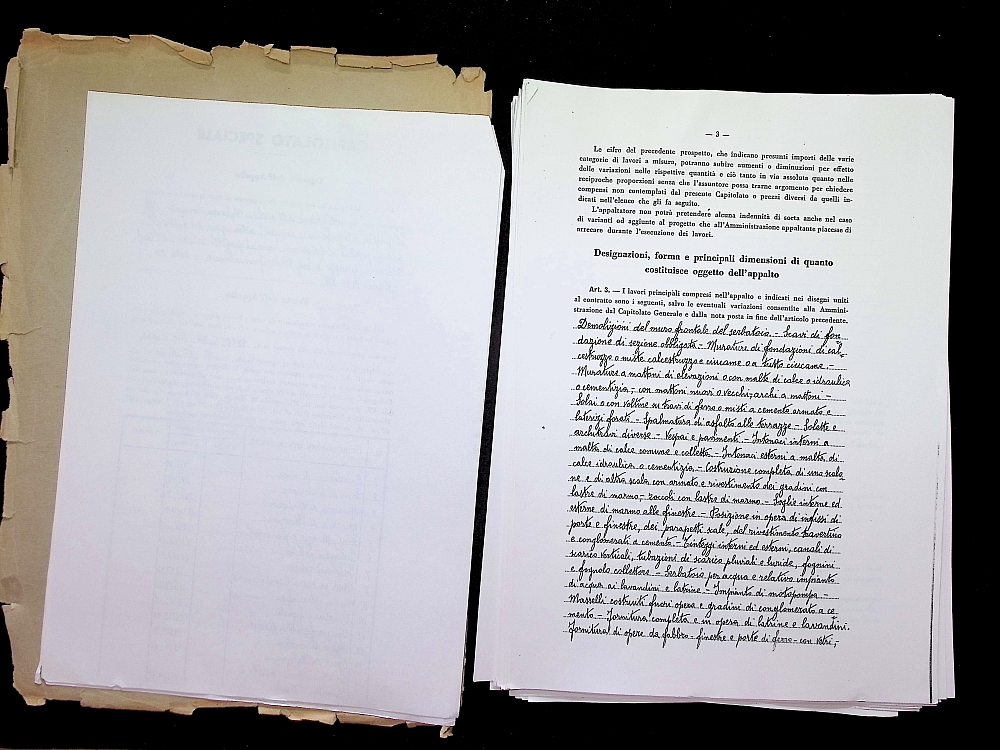 CAPITOLATO SPECIALE
— 3 —
Le cifre del precedente prospetto, che indicano presunti importi delle varie
categorie di lavori a misura, potranno subire aumenti o diminuzioni per effetto
delle variazioni nelle rispettive quantità e ciò tanto in via assoluta quanto nelle
reciproche proporzioni senza che l'assuntore possa trarne argomento per chiedere
compensi non contemplati dal presente Capitolato o prezzi diversi da quelli in-
dicati nell'elenco che gli fa seguito.
L'appaltatore non potrà pretendere alcuna indennità di sorta anche nel caso
di varianti od aggiunte al progetto che all'Amministrazione appaltante piacesse di
arrecare durante l'esecuzione dei lavori.
Designazioni, forma e principali dimensioni di quanto
costituisce oggetto dell'appalto
Art. 3. — I lavori principali compresi nell'appalto o indicati nei disegni uniti
al contratto sono i seguenti, salvo le eventuali variazioni consentite alla Ammini-
strazione dal Capitolato Generale e dalla nota posta in fine dell'articolo precedente.
Demolizioni del muro frontale del serbatoio. - Scavi di fon
dazione di sezione obbligata - Murature di fondazioni di cal-
cestruzzo o miste calcestruzzo e ciucame o a tutto ciucame. -
Murature a mattoni di elevazioni o con malta di calce o idraulica
o cementizia, - con mattoni nuovi o vecchi; archi a mattoni -
Solai o con voltine su travi di ferro o misti a cemento armato e
laterizi forati - Spalmatura di asfalto alle terrazze - Solette e
architravi diverse - Vespai e pavimenti - Intonaci interni a
malta di calce comune e colletta - Intonaci esterni a malta di
calce idraulica o cementizia, - Costruzione completa di uno scalo
ne e di altra scala con armato e rivestimento dei gradini con
lastre di marmo, - zoccoli con lastre di marmo - Soglie interne ed
esterne di marmo alle finestre - Posizione in opera di infissi di
porte e finestre, dei parapetti scale, del rivestimento travertino
e conglomerati a cemento - Tinteggi interni ed esterni, canali di
scarico verticali, tubazioni di scarico pluviali e luride, fognini
e fognolo collettore - Serbatoio per acqua e relativo impianto
di acqua ai lavandini e latrine - Impianto di motopompa -
Masselli costruiti fuori opera e gradini di conglomerato a ce
mento - Fornitura completa e in opera di latrine e lavandini.
Fornitura di opere da fabbro - finestre e porte di ferro - con vetri, -